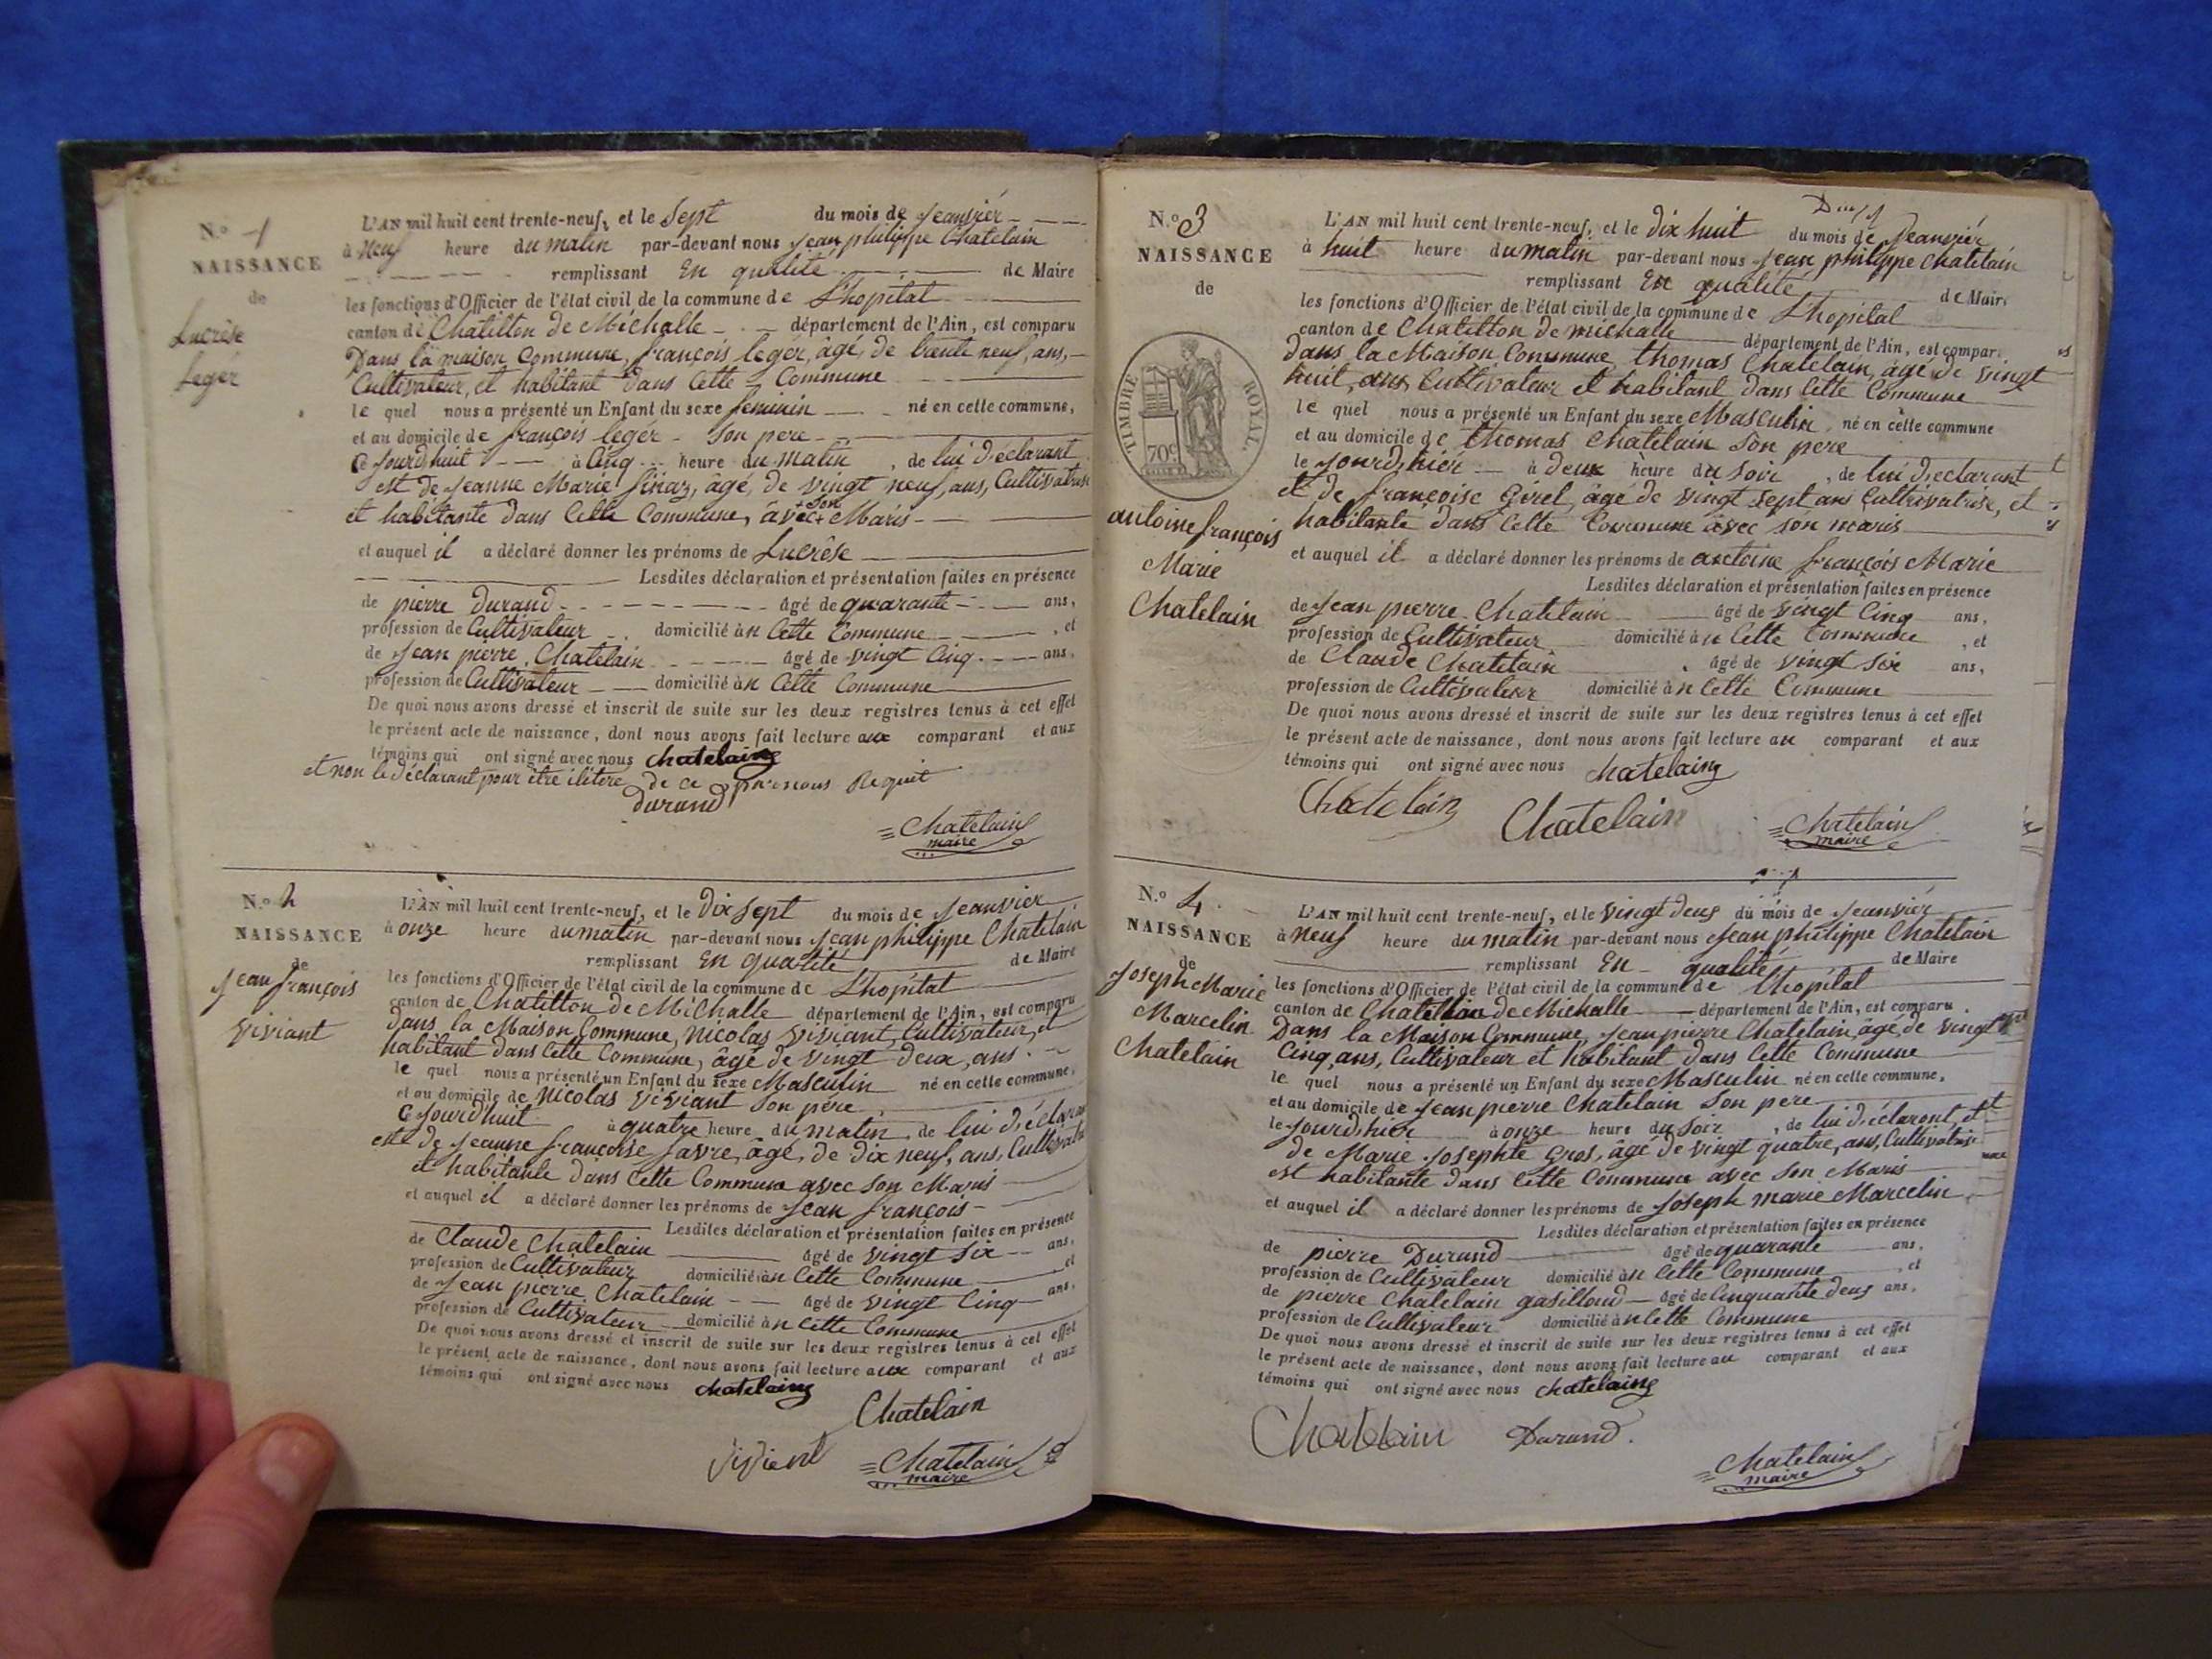 N.o 1
NAISSANCE
de
Lucrèse
Leger
L'AN mil huit cent trente-neuf, et le Sept du mois de Jeanvier
à Neuf heure du matin par-devant nous Jean philippe Chatelain
remplissant En qualité de Maire
les fonctions d'Officier de l'état civil de la commune de L'hopital
canton de Chatillon de Michalle département de l'Ain, est comparu
Dans la maison Commune, françois legér, âgé, de trente neuf, ans,
Cultivateur, et habitant dans Cette Commune
le quel nous a présenté un Enfant du sexe feminin né en cette commune,
et au domicile de françois legér Son pere
Ce Jourdhuit à Cinq heure du matin, de lui déclarant
est de Jeanne Marie Sinaz, âgé, de vingt neuf, ans, Cultivatrise
et habitante dans Cette Commune, avec son Maris
et auquel il a déclaré donner les prénoms de Lucrèse
Lesdites déclaration et présentation faites en présence
de pierre Durand âgé de quarante ans,
profession de Cultivateur domicilié àn Cette Commune, et
de Jean pierre Chatelain âgé de vingt Cinq ans,
profession de Cultivateur domicilié àn Cette Commune
De quoi nous avons dressé et inscrit de suite sur les deux registres tenus à cet effet
le présent acte de naissance, dont nous avons fait lecture aux comparant et aux
témoins qui ont signé avec nous chatelain
et non le déclarant pour être ilitere de ce par nous Requit
durand
Chatelain
maire
N.o 2
NAISSANCE
de
Jean françois
Viviant
L'AN mil huit cent trente-neuf, et le Dix Sept du mois de Jeanvier
à onze heure du matin par-devant nous Jean philippe Chatelain
remplissant En qualité de Maire
les fonctions d'Officier de l'état civil de la commune de L'hopital
canton de Chatillon de Michalle département de l'Ain, est comparu
dans la Maison Commune, Nicolas Viviant, Cultivateur, et
habitant dans Cette Commune, âgé de vingt deux, ans
le quel nous a présenté un Enfant du sexe Masculin né en cette commune,
et au domicile de Nicolas Viviant Son pére
Ce Jourd'huit à quatre heure du matin, de lui déclarant
est de Jeanne françoise favre, âgé, de dix neuf, ans, Cultivatri
et habitante dans Cette Commune avec Son Maris
et auquel il a déclaré donner les prénoms de Jean françois
Lesdites déclaration et présentation faites en présence
de Claude Chatelain âgé de vingt Six ans,
profession de Cultivateur domicilié àn Cette Commune et
de Jean pierre Chatelain âgé de vingt Cinq ans,
profession de Cultivateur domicilié àn Cette Commune
De quoi nous avons dressé et inscrit de suite sur les deux registres tenus à cet effet
le présent acte de naissance, dont nous avons fait lecture aux comparant et aux
témoins qui ont signé avec nous chatelain
Chatelain
Vivient
Chatelain
maire
N.o 3
NAISSANCE
de
TIMBRE ROYAL
70c
antoine françois
Marie
Chatelain
L'AN mil huit cent trente-neuf, et le Dix huit du mois de Jeanviér
à huit heure du matin par-devant nous Jean philippe Chatelain
remplissant En qualité de Maire
les fonctions d'Officier de l'état civil de la commune de L'hopital
canton de Chatillon de michalle département de l'Ain, est compar
dans la Maison Commune, thomas Chatelain, âgé de vingt
huit, ans, Cultivateur et habitant dans Cette Commune
le quel nous a présenté un Enfant du sexe Masculin né en cette commune
et au domicile de thomas Chatelain Son pere
le Jourd'hiér à deux heure du Soir, de lui déclarant
et de françoise Girel, âgé de vingt Sept ans Cultivatrise, et
habitante dans Cette Commune avec son maris
et auquel il a déclaré donner les prénoms de antoine françois Marie
Lesdites déclaration et présentation faites en présence
de Jean pierre Chatelain âgé de vingt Cinq ans,
profession de Cultivateur domicilié àn Cette Commune, et
de Claude Chatelain âgé de vingt Six ans,
profession de Cultivateur domicilié àn Cette Commune
De quoi nous avons dressé et inscrit de suite sur les deux registres tenus à cet effet
le présent acte de naissance, dont nous avons fait lecture au comparant et aux
témoins qui ont signé avec nous chatelain
Chatelain Chatelain
Chatelain
maire
N.o 4
NAISSANCE
de
Joseph Marie
Marcelin
Chatelain
L'AN mil huit cent trente-neuf, et le vingt deus du mois de Jeanviér
à Neuf heure du matin par-devant nous Jean philippe Chatelain
remplissant En qualité de Maire
les fonctions d'Officier de l'état civil de la commune de L'hopital
canton de Chatillon de Michalle département de l'Ain, est comparu
Dans la Maison Commune, Jean pierre Chatelain, âgé, de vingt
Cinq, ans, Cultivateur et habitant dans Cette Commune
le quel nous a présenté un Enfant du sexe Masculin né en cette commune,
et au domicile de Jean pierre Chatelain Son pere
le Jourd'hier à onze heure du Soir, de lui déclarant et
de Marie Josephte Gros, âgé de vingt quatre, ans, Cultivatrise
est habitante dans Cette Commune avec Son Maris
et auquel il a déclaré donner les prénoms de Joseph marie Marcelin
Lesdites déclaration et présentation faites en présence
de pierre Durand âgé de quarante ans,
profession de Cultivateur domicilié àn Cette Commune, et
de pierre Chatelain gasilloud âgé de Cinquante deus ans,
profession de Cultivateur domicilié àn Cette Commune
De quoi nous avons dressé et inscrit de suite sur les deux registres tenus à cet effet
le présent acte de naissance, dont nous avons fait lecture au comparant et aux
témoins qui ont signé avec nous chatelain
Chatelain Durand.
Chatelain
maire